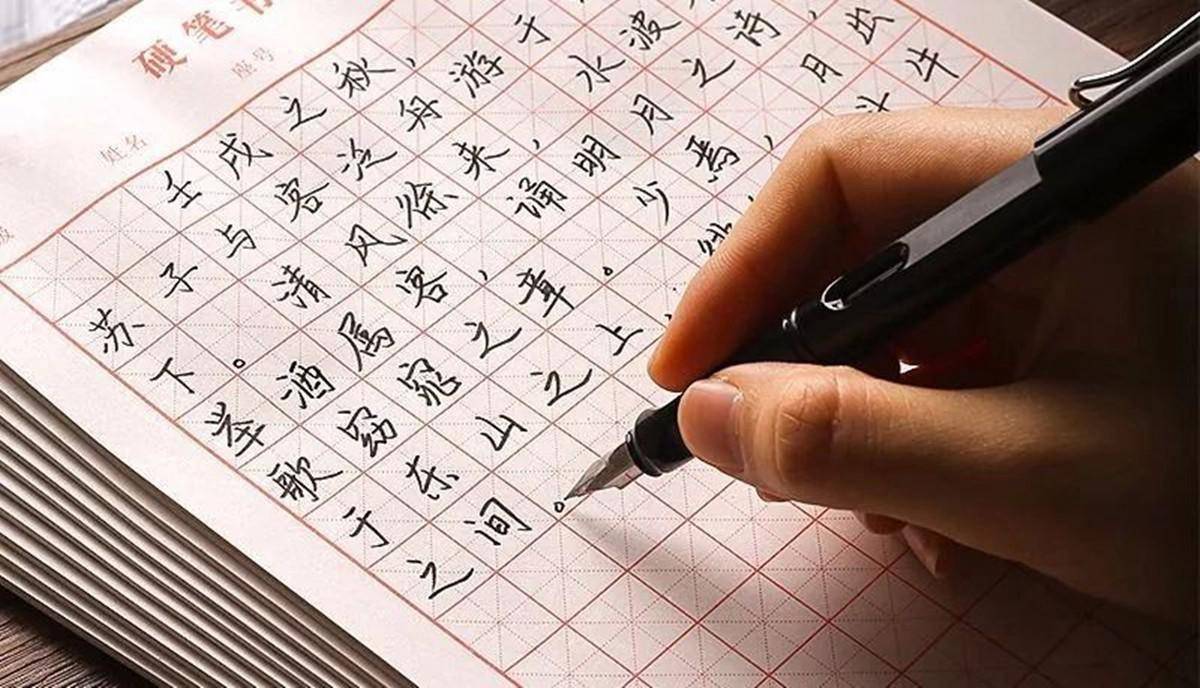 硬笔书
座号
姓名
壬戌之秋，
苏子与客泛舟游于
下。清风徐来，水波
举酒属客，诵明月之诗，
歌窈窕之章。少焉，月出
于东山之上，斗牛
之间。